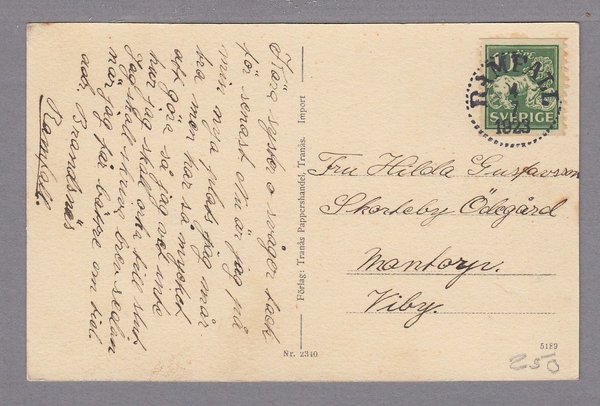 Kära syster o svåger tack
för senast Nu är jag på
min nya plats jag mår
bra men har så mycket
att göra så jag vet inte
hur jag skal orka till slut
Jag skal skriva brev sedan
när jag får bättre om tid.
adr. Brandsnäs
Ramfall.
Förlag: Tranås Pappershandel, Tranås. Import
Nr. 2340
RAMFALL
4
7
1923
SVERIGE
Fru Hilda Gustavsson
Skorteby Ödegård
Mantorp.
Viby.
5189
250